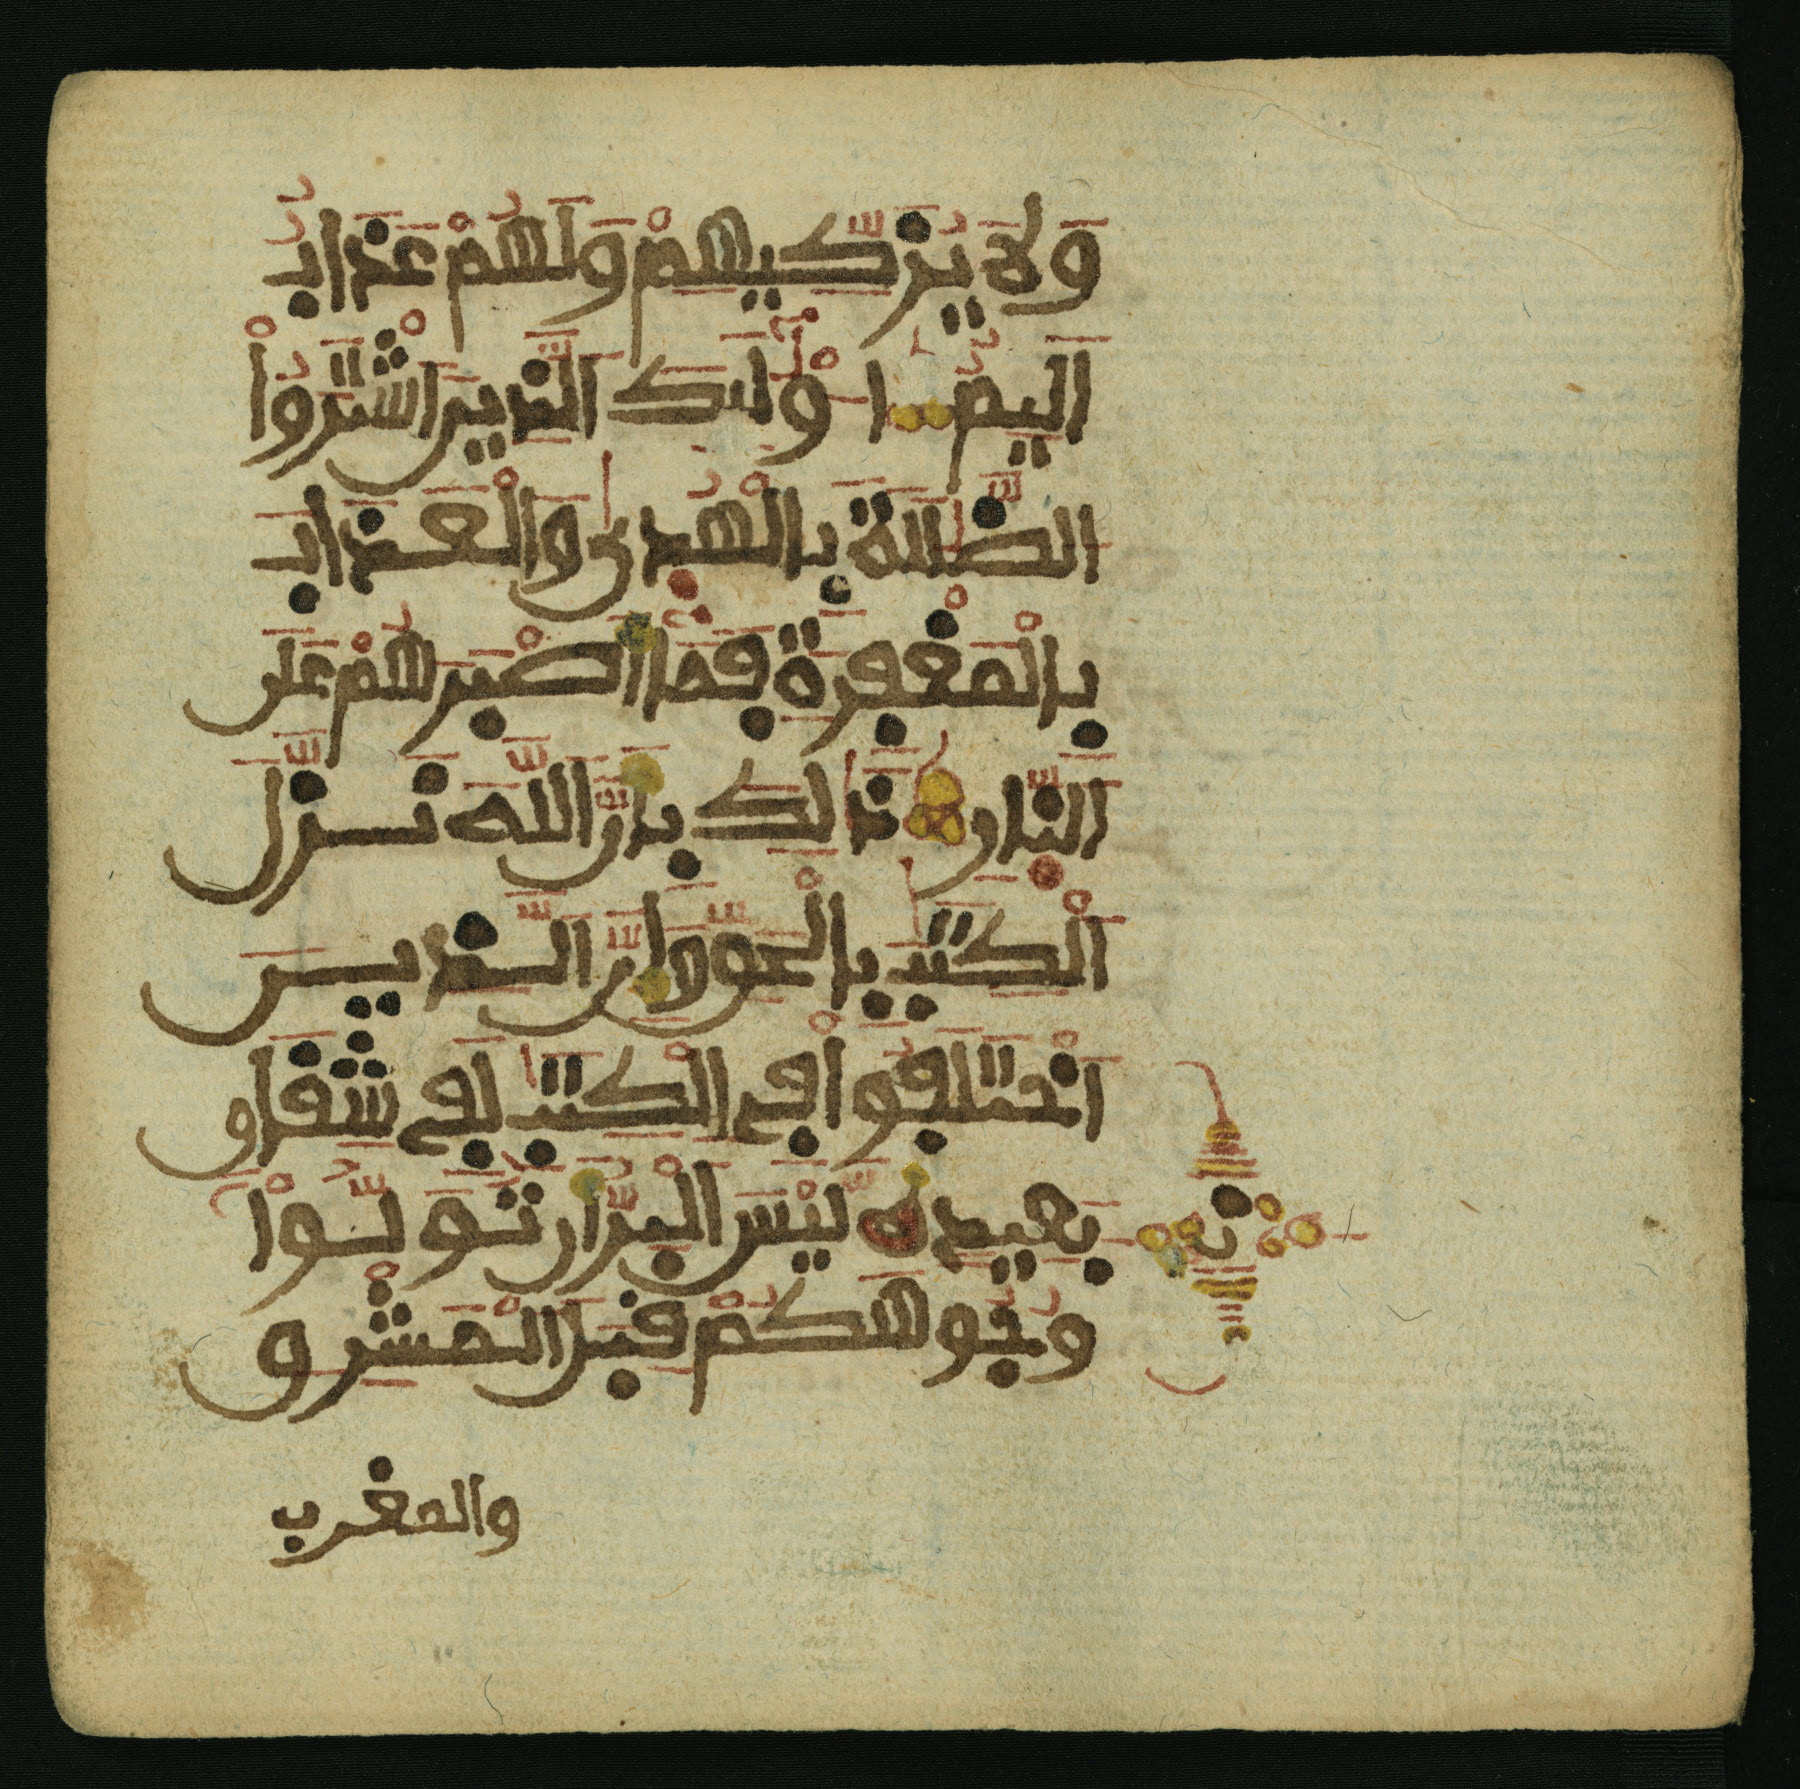 وَلَا يُزَكِّيهِمْ وَلَهُمْ عَذَابٌ
اَلِيمٌ اُوْلَٰئِكَ الَّذِينَ اَشْتَرَوُاْ
الضَّلَٰلَةَ بِالْهُدَىٰ وَالْعَذَابَ
بِالْمَغْفِرَةِ فَمَا أَصْبَرَهُمْ عَلَى
النَّارِ ذَٰلِكَ بِأَنَّ اللَّهَ نَزَّلَ
الْكِتَٰبَ بِالْحَقِّ وَإِنَّ الَّذِينَ
اَخْتَلَفُواْ فِي الْكِتَٰبِ لَفِي شِقَاقٍ
بَعِيدٍ لَّيْسَ الْبِرُّ أَن تُوَلُّواْ
وُجُوهَكُمْ قِبَلَ الْمَشْرِقِ
والمغرب